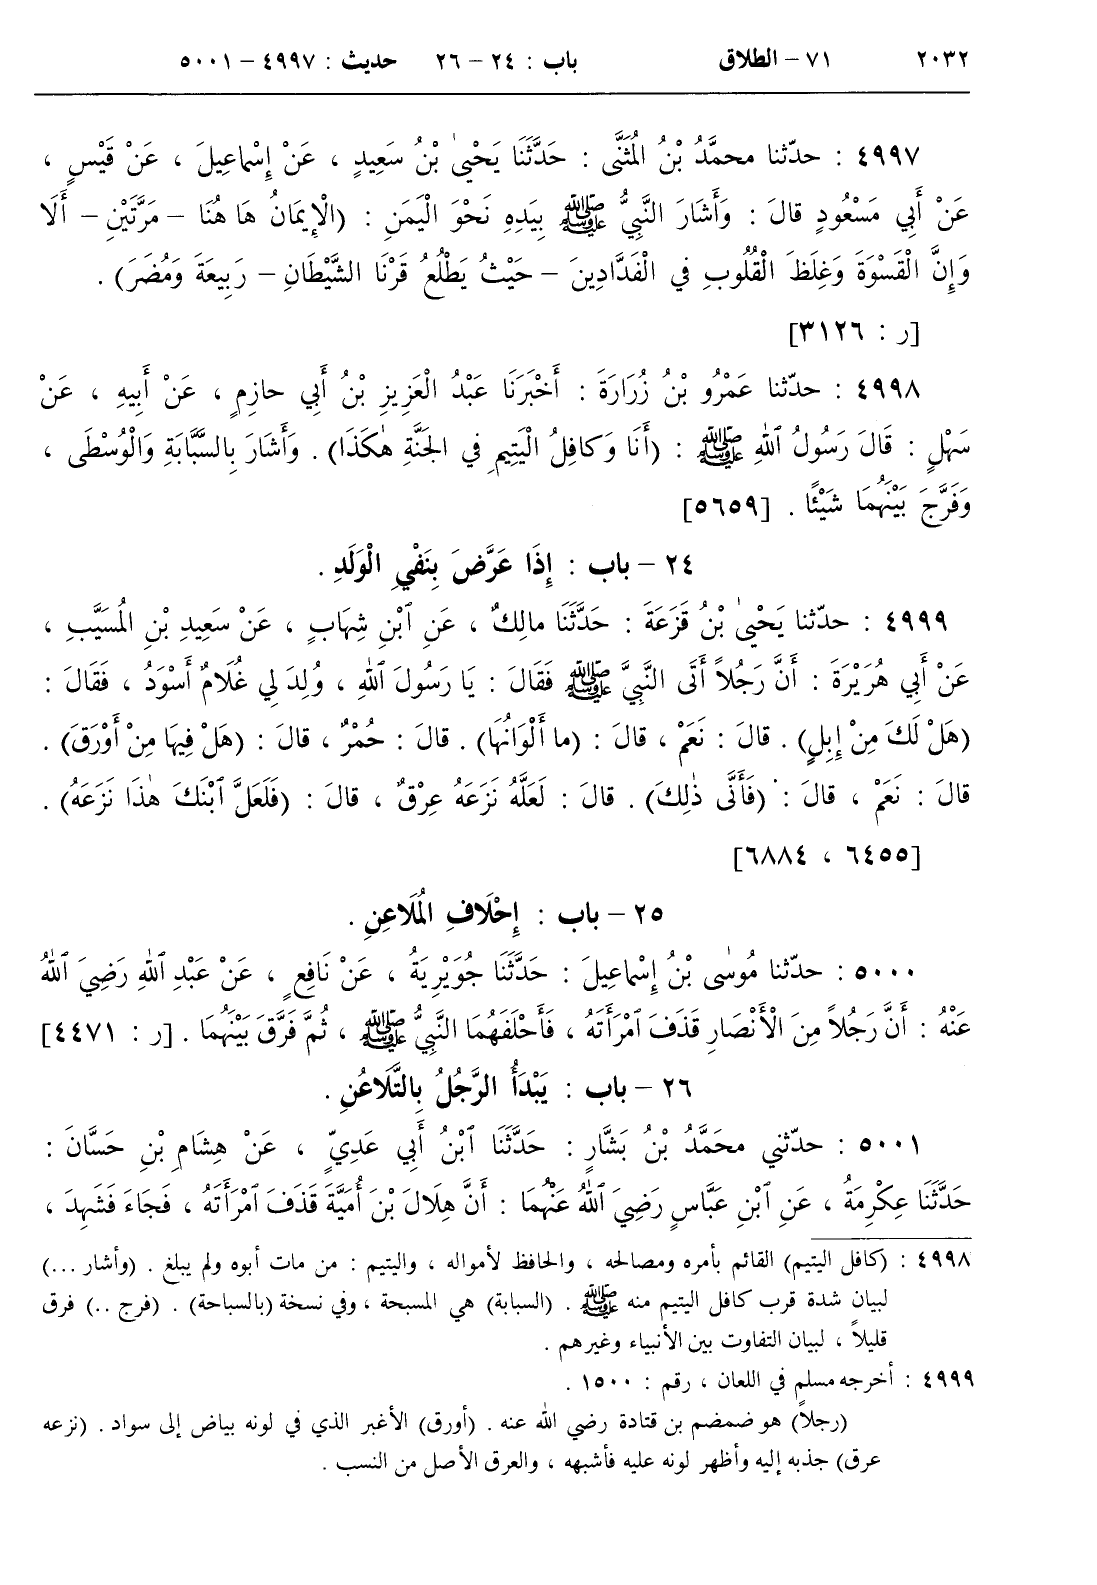 ٢٠٣٢ ٧١ – الطلاق باب : ٢٤ – ٢٦ حديث : ٤٩٩٧ – ٥٠٠١
٤٩٩٧ : حدّثنا محمَّدُ بْنُ الْمُثَنَّى : حَدَّثَنَا يَحْيىٰ بْنُ سَعِيدٍ ، عَنْ إِسْماعِيلَ ، عَنْ قَيْسٍ ،
عَنْ أَبِي مَسْعُودٍ قالَ : وَأَشَارَ النَّبِيُّ ﷺ بِيَدِهِ نَحْوَ الْيَمَنِ : (الْإِيمَانُ هَا هُنَا – مَرَّتَيْنِ – أَلَا
وَإِنَّ الْقَسْوَةَ وَغِلَظَ الْقُلُوبِ فِي الْفَدَّادِينَ – حَيْثُ يَطْلُعُ قَرْنَا الشَّيْطَانِ – رَبِيعَةَ وَمُضَرَ) .
[ر : ٣١٢٦]
٤٩٩٨ : حدّثنا عَمْرُو بْنُ زُرَارَةَ : أَخْبَرَنَا عَبْدُ الْعَزِيزِ بْنُ أَبِي حازِمٍ ، عَنْ أَبِيهِ ، عَنْ
سَهْلٍ : قَالَ رَسُولُ ٱللهِ ﷺ : (أَنَا وَكافِلُ الْيَتِيمِ فِي الجَنَّةِ هٰكَذَا) . وَأَشَارَ بِالسَّبَّابَةِ وَالْوُسْطَى ،
وَفَرَّجَ بَيْنَهُمَا شَيْئًا . [٥٦٥٩]
٢٤ – باب : إِذَا عَرَّضَ بِنَفْيِ الْوَلَدِ .
٤٩٩٩ : حدّثنا يَحْيىٰ بْنُ قَزَعَةَ : حَدَّثَنَا مالِكٌ ، عَنِ ٱبْنِ شِهَابٍ ، عَنْ سَعِيدِ بْنِ الْمُسَيَّبِ ،
عَنْ أَبِي هُرَيْرَةَ : أَنَّ رَجُلاً أَتَى النَّبِيَّ ﷺ فَقَالَ : يَا رَسُولَ ٱللهِ ، وُلِدَ لِي غُلَامٌ أَسْوَدُ ، فَقَالَ :
(هَلْ لَكَ مِنْ إِبِلٍ) . قالَ : نَعَمْ ، قالَ : (ما أَلْوَانُهَا) . قالَ : حُمْرٌ ، قالَ : (هَلْ فِيهَا مِنْ أَوْرَقَ) .
قالَ : نَعَمْ ، قالَ : (فَأَنَّى ذٰلِكَ) . قالَ : لَعَلَّهُ نَزَعَهُ عِرْقٌ ، قالَ : (فَلَعَلَّ ٱبْنَكَ هٰذَا نَزَعَهُ) .
[٦٤٥٥ ، ٦٨٨٤]
٢٥ – باب : إِحْلَافِ الْمُلَاعِنِ .
٥٠٠٠ : حدّثنا مُوسٰى بْنُ إِسْماعِيلَ : حَدَّثَنَا جُوَيْرِيَةُ ، عَنْ نَافِعٍ ، عَنْ عَبْدِ ٱللهِ رَضِيَ ٱللهُ
عَنْهُ : أَنَّ رَجُلاً مِنَ الْأَنْصَارِ قَذَفَ ٱمْرَأَتَهُ ، فَأَحْلَفَهُمَا النَّبِيُّ ﷺ ، ثُمَّ فَرَّقَ بَيْنَهُمَا . [ر : ٤٤٧١]
٢٦ – باب : يَبْدَأُ الرَّجُلُ بِالتَّلَاعُنِ .
٥٠٠١ : حدّثني محمَّدُ بْنُ بَشَّارٍ : حَدَّثَنَا ٱبْنُ أَبِي عَدِيٍّ ، عَنْ هِشَامِ بْنِ حَسَّانَ :
حَدَّثَنَا عِكْرِمَةُ ، عَنِ ٱبْنِ عَبَّاسٍ رَضِيَ ٱللهُ عَنْهُمَا : أَنَّ هِلَالَ بْنَ أُمَيَّةَ قَذَفَ ٱمْرَأَتَهُ ، فَجَاءَ فَشَهِدَ ،
٤٩٩٨ : (كافل اليتيم) القائم بأمره ومصالحه ، والحافظ لأمواله ، واليتيم : من مات أبوه ولم يبلغ . (وأشار ...)
لبيان شدة قرب كافل اليتيم منه ﷺ . (السبابة) هي المسبحة ، وفي نسخة (بالسباحة) . (فرج ..) فرق
قليلاً ، لبيان التفاوت بين الأنبياء وغيرهم .
٤٩٩٩ : أخرجه مسلم في اللعان ، رقم : ١٥٠٠ .
(رجلاً) هو ضمضم بن قتادة رضي الله عنه . (أورق) الأغبر الذي في لونه بياض إلى سواد . (نزعه
عرق) جذبه إليه وأظهر لونه عليه فأشبهه ، والعرق الأصل من النسب .